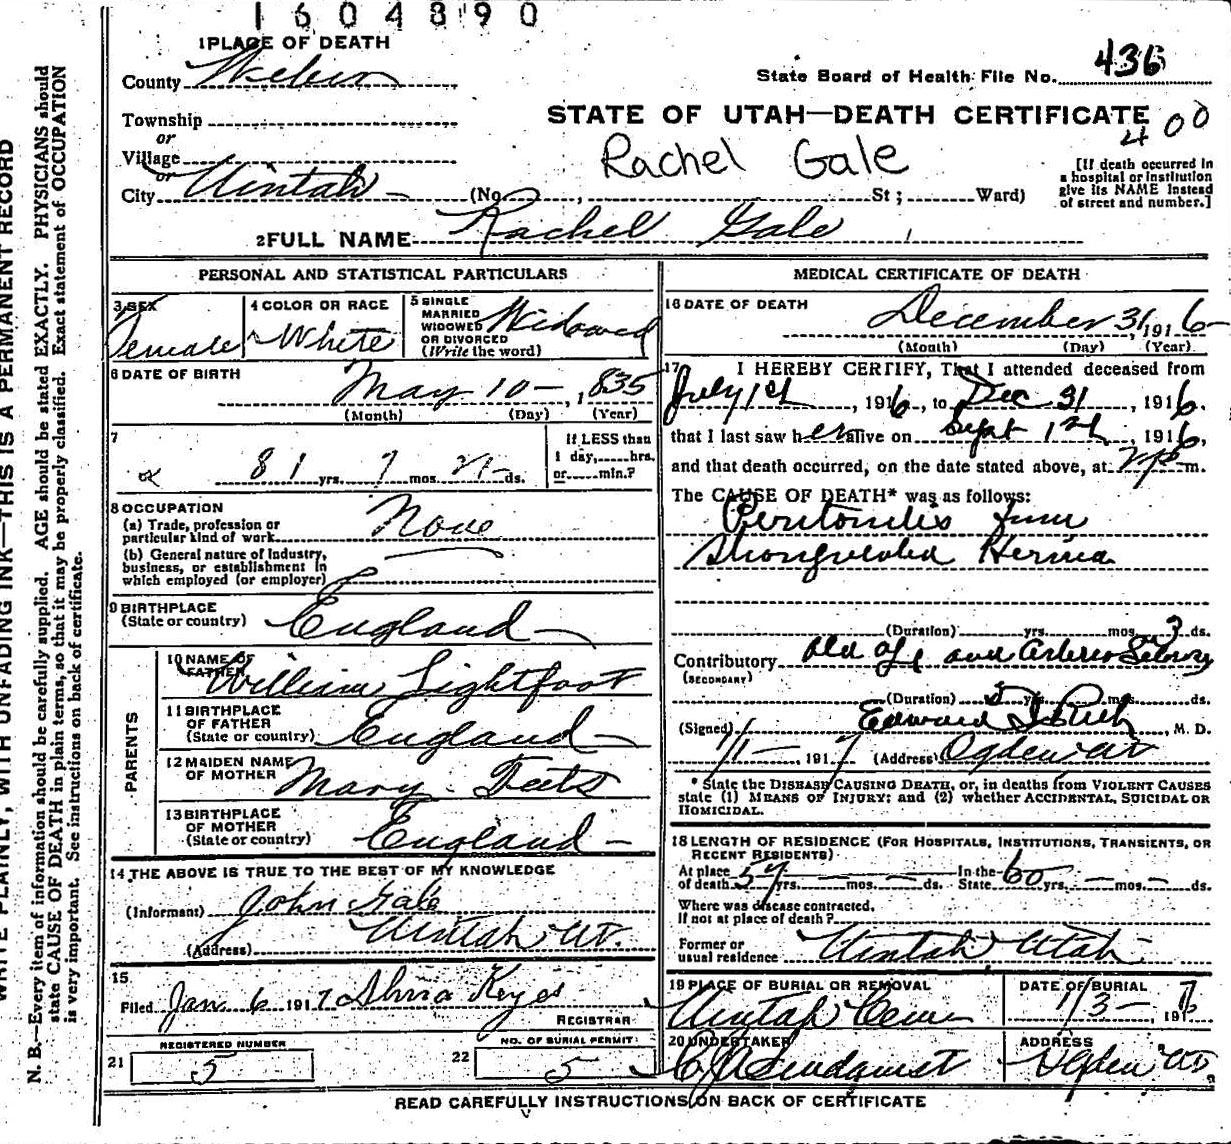 1604890
1 PLACE OF DEATH
County Weber
State Board of Health File No. 436
STATE OF UTAH—DEATH CERTIFICATE
400
Township
or
Village
or
City Uintah (No. , St; Ward)
Rachel Gale
[If death occurred in
a hospital or institution
give its NAME instead
of street and number.]
2 FULL NAME Rachel Gale
PERSONAL AND STATISTICAL PARTICULARS
3 SEX Female
4 COLOR OR RACE White
5 SINGLE
MARRIED
WIDOWED
OR DIVORCED
(Write the word) Widowed
6 DATE OF BIRTH May 10 — , 1835
(Month) (Day) (Year)
7
81 yrs. 7 mos. 21 ds.
If LESS than
1 day, hrs.
or min.?
8 OCCUPATION
(a) Trade, profession or
particular kind of work None
(b) General nature of Industry,
business, or establishment in
which employed (or employer)
9 BIRTHPLACE
(State or country) England
PARENTS
10 NAME OF
FATHER William Lightfoot
11 BIRTHPLACE
OF FATHER
(State or country) England
12 MAIDEN NAME
OF MOTHER Mary
13 BIRTHPLACE
OF MOTHER
(State or country) England
14 THE ABOVE IS TRUE TO THE BEST OF MY KNOWLEDGE
(Informant) John Gale
(Address) Uintah Ut.
15
Filed Jan 6 1917 Keyes
REGISTRAR
21 REGISTERED NUMBER
5
22 NO. OF BURIAL PERMIT
5
MEDICAL CERTIFICATE OF DEATH
16 DATE OF DEATH
December 31, 1916
(Month) (Day) (Year)
17 I HEREBY CERTIFY, That I attended deceased from
July 1st, 1916, to Dec 31, 1916.
that I last saw her alive on Sept 12th, 1916,
and that death occurred, on the date stated above, at m.
The CAUSE OF DEATH* was as follows:
Peritonitis from
Strangulated Hernia
(Duration) yrs. mos. 3 ds.
Contributory old age and Arterio Sclerosis
(SECONDARY)
(Duration) yrs. mos. ds.
(Signed) Edward I Rich, M. D.
1/1 — 1917 (Address) Ogden Ut
* State the DISEASE CAUSING DEATH, or, in deaths from VIOLENT CAUSES
state (1) MEANS OF INJURY; and (2) whether ACCIDENTAL, SUICIDAL OR
HOMICIDAL.
18 LENGTH OF RESIDENCE (FOR HOSPITALS, INSTITUTIONS, TRANSIENTS, OR
RECENT RESIDENTS)
At place
of death 57 yrs. — mos. — ds. In the
State 60 yrs. — mos. — ds.
Where was disease contracted,
If not at place of death?
Former or
usual residence Uintah, Utah
19 PLACE OF BURIAL OR REMOVAL
Uintah Cem
DATE OF BURIAL
1/3 — 1917
20 UNDERTAKER
Lindquist
ADDRESS
Ogden Ut.
READ CAREFULLY INSTRUCTIONS ON BACK OF CERTIFICATE
WRITE PLAINLY, WITH UNFADING INK—THIS IS A PERMANENT RECORD
N. B.—Every item of information should be carefully supplied. AGE should be stated EXACTLY. PHYSICIANS should
state CAUSE OF DEATH in plain terms, so that it may be properly classified. Exact statement of OCCUPATION
is very important. See instructions on back of certificate.